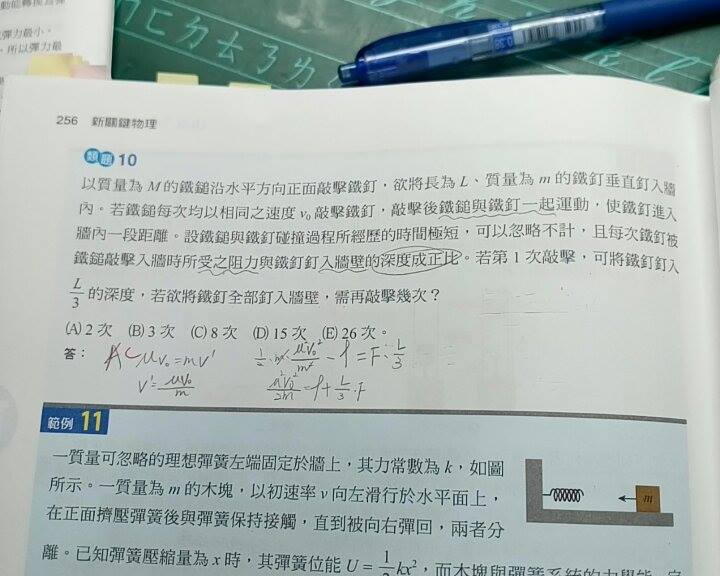 動能轉換為彈
彈力最小。
，所以彈力最
ㄇㄈㄉㄊㄋㄌ
0.38
256 新關鍵物理
類題 10
以質量為 M 的鐵鎚沿水平方向正面敲擊鐵釘，欲將長為 L、質量為 m 的鐵釘垂直釘入牆
內。若鐵鎚每次均以相同之速度 v₀ 敲擊鐵釘，敲擊後鐵鎚與鐵釘一起運動，使鐵釘進入
牆內一段距離。設鐵鎚與鐵釘碰撞過程所經歷的時間極短，可以忽略不計，且每次鐵釘被
鐵鎚敲擊入牆時所受之阻力與鐵釘釘入牆壁的深度成正比。若第 1 次敲擊，可將鐵釘釘入
L/3 的深度，若欲將鐵釘全部釘入牆壁，需再敲擊幾次？
(A) 2 次 (B) 3 次 (C) 8 次 (D) 15 次 (E) 26 次。
答： C Mv₀=mv'
v'=Mv₀/m
範例 11
一質量可忽略的理想彈簧左端固定於牆上，其力常數為 k，如圖
所示。一質量為 m 的木塊，以初速率 v 向左滑行於水平面上，
在正面擠壓彈簧後與彈簧保持接觸，直到被向右彈回，兩者分
離。已知彈簧壓縮量為 x 時，其彈簧位能 U = 1/2 kx²，而木塊與彈簧系統的力學能
m